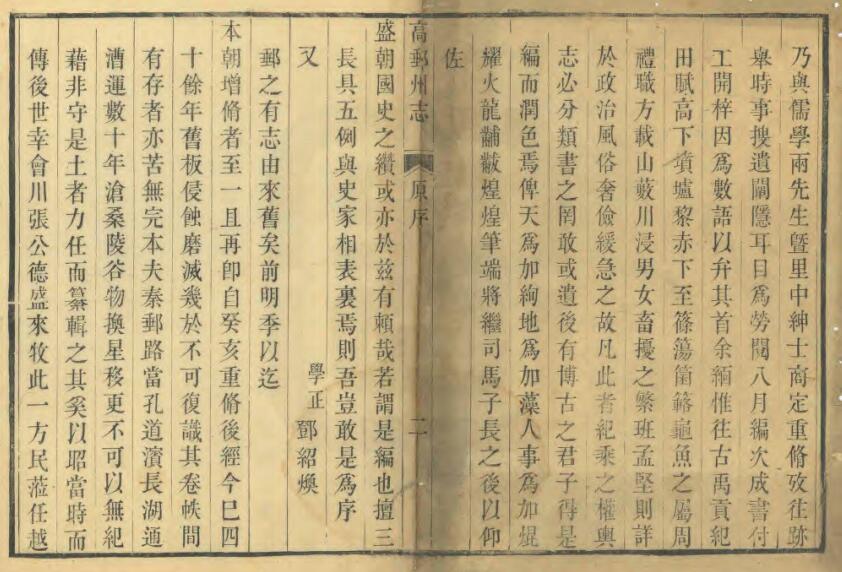 乃與儒學兩先生曁里中紳士商定重脩攷往跡
舉時事搜遺闡隱耳目爲勞閱八月編次成書付
工開梓因爲數語以弁其首余緬惟往古禹貢紀
田賦高下墳壚黎赤下至篠簜箘簵龜魚之屬周
禮職方載山藪川浸男女畜擾之繁班孟堅則詳
於政治風俗奢儉緩急之故凡此者紀乘之權輿
志必分類書之罔敢或遺後有博古之君子得是
編而潤色焉俾天爲加絢地爲加藻人事爲加焜
耀火龍黼黻煌煌筆端將繼司馬子長之後以仰
佐
高郵州志 原序 二
盛朝國史之纘或亦於兹有賴哉若謂是編也擅三
長具五例與史家相表裏焉則吾豈敢是爲序
又 學正 鄧紹煥
郵之有志由來舊矣前明季以迄
本朝增脩者至一且再卽自癸亥重脩後經今巳四
十餘年舊板侵蝕磨滅幾於不可復識其卷帙間
有存者亦苦無完本夫秦郵路當孔道濱長湖通
漕運數十年滄桑陵谷物換星移更不可以無紀
藉非守是土者力任而纂輯之其奚以昭當時而
傳後世幸會川張公德盛來牧此一方民蒞任越